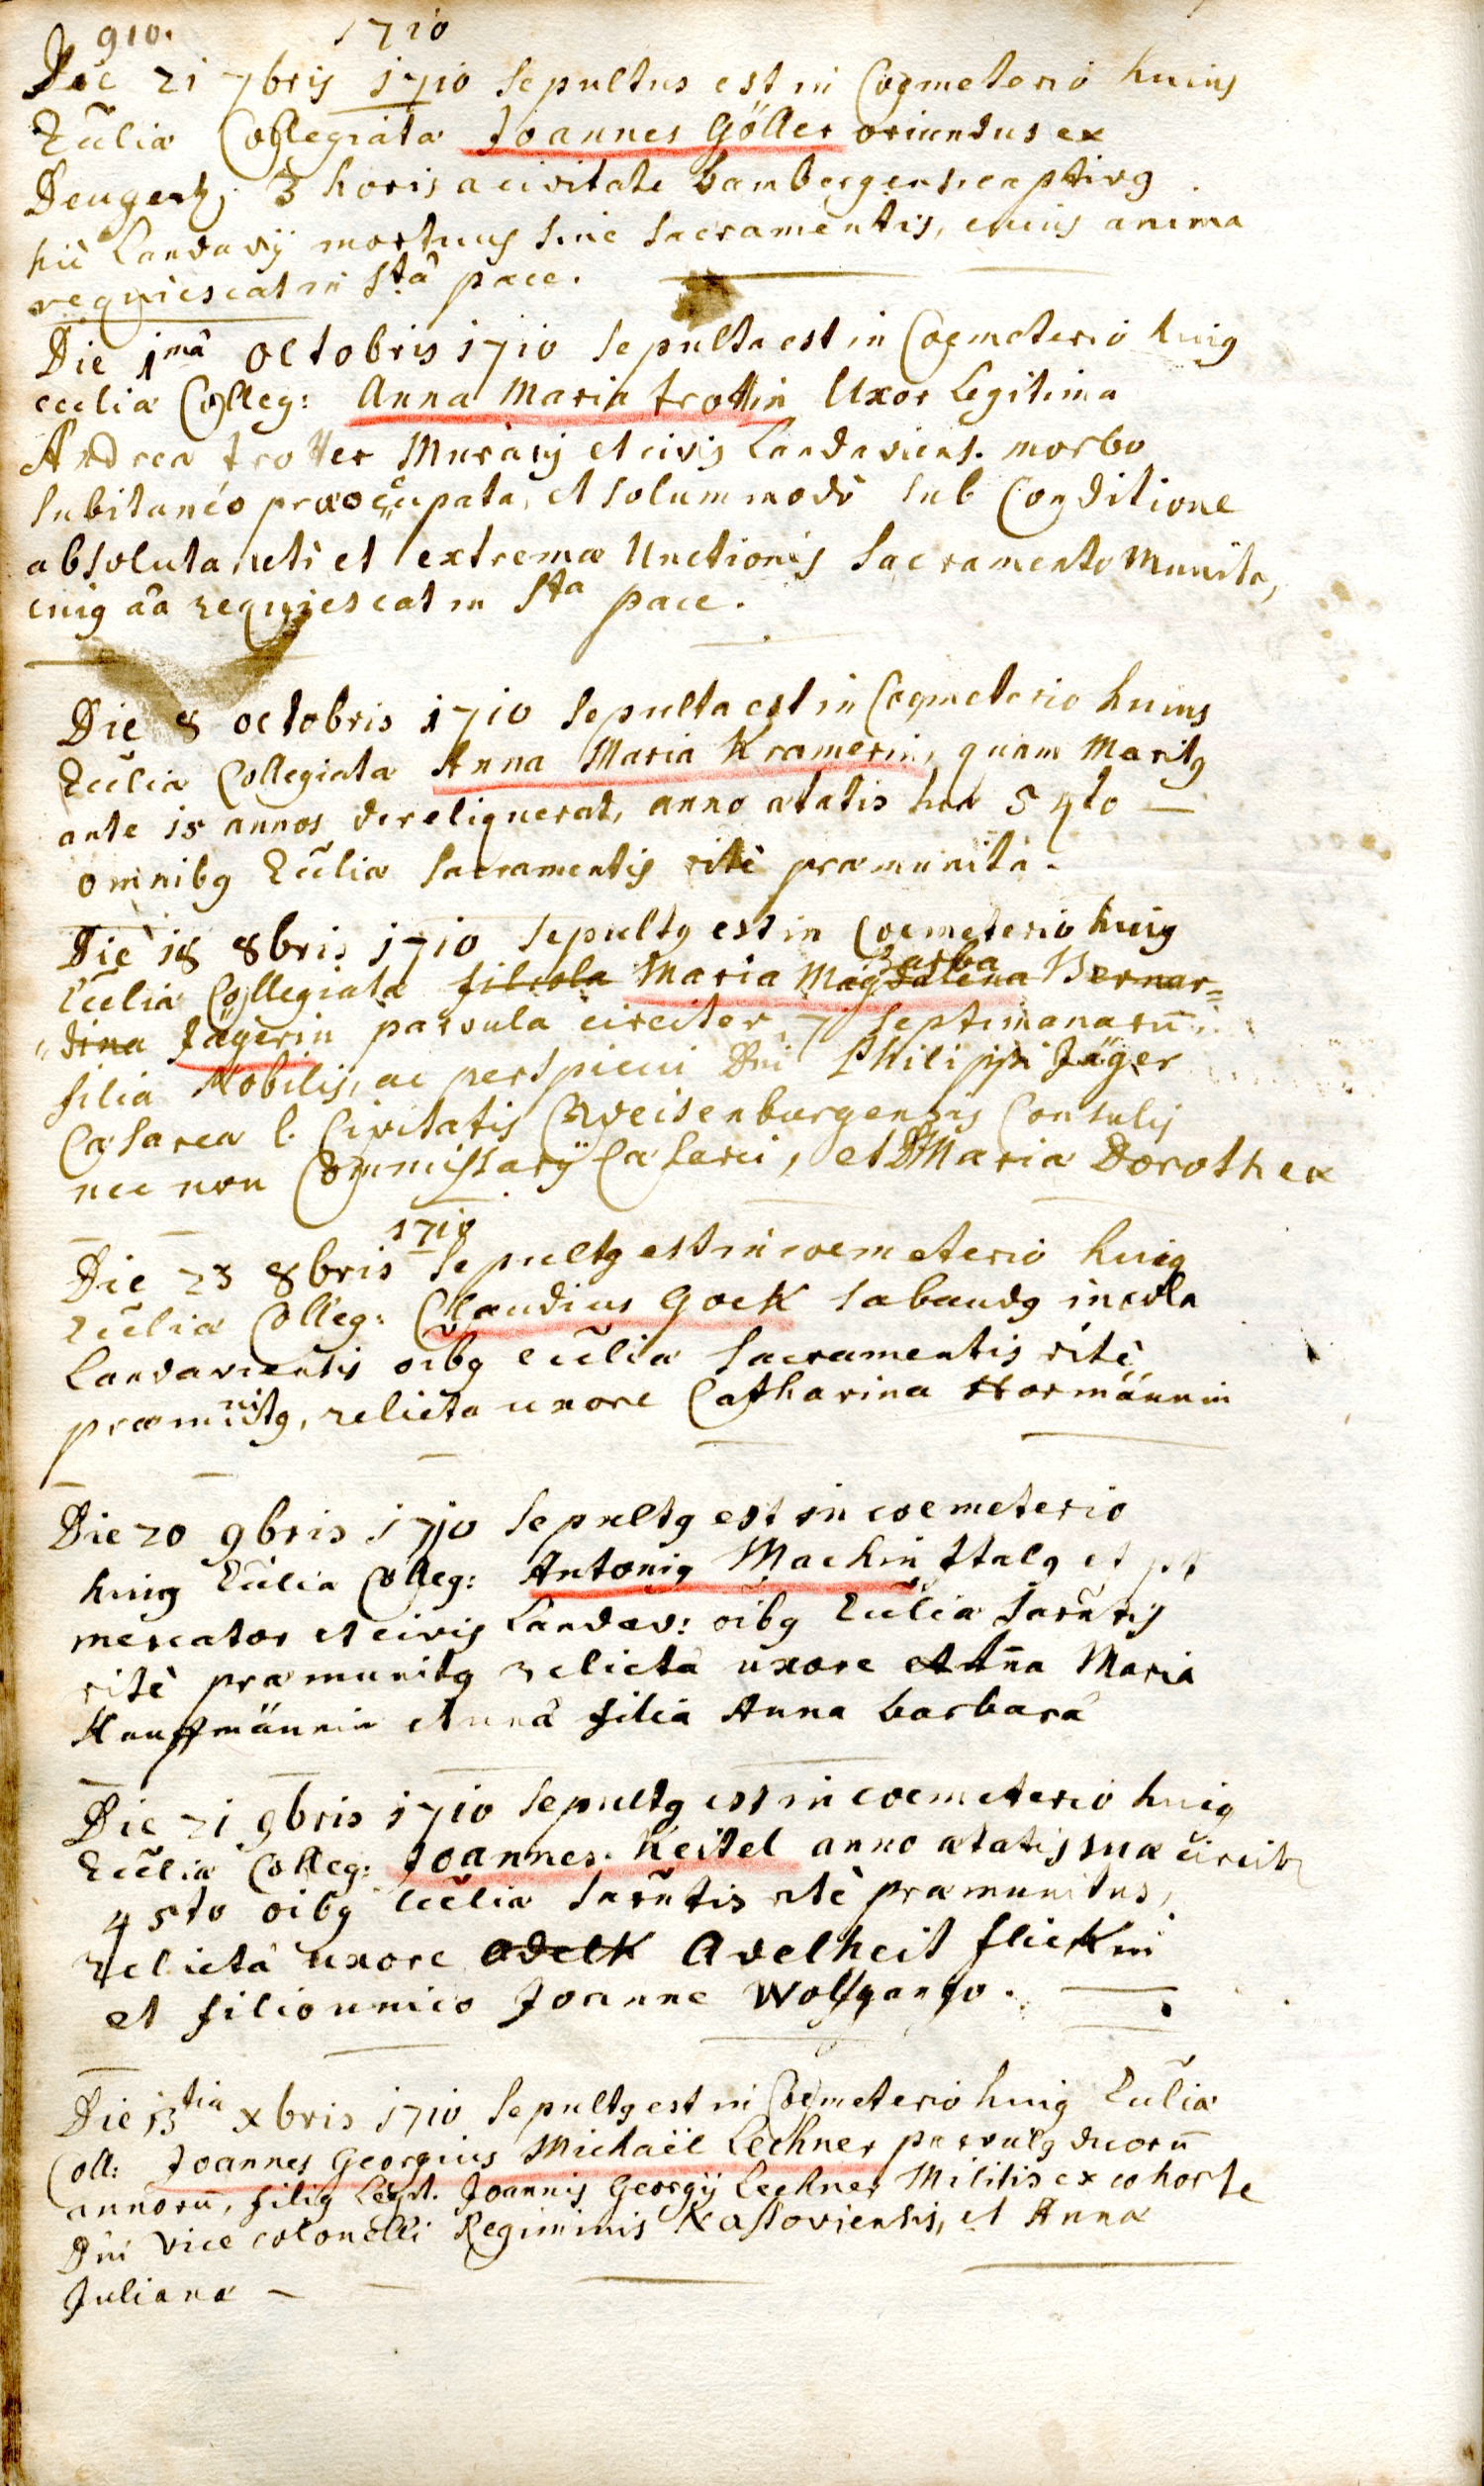 910. 1710
Die 21 7bris 1710 sepultus est in Coemeterio huius
Eccliæ Collegiatæ Joannes Göller oriundus ex
3 horis a civitate bambergensi captivg
hic Landavij mortuus sine sacramentis, cuius anima
requiescat in stâ pace.
Die 1mâ octobris 1710 sepulta est in Coemeterio huig
eccliæ Colleg: Anna Maria trottin Uxor Legitima
Andreæ trotter Murarij et civis Landaviens. morbo
subitaneo præoccupata, et solummodò sub Conditione
absoluta, uti et extremæ Unctionis sacramento munita,
cuig aâ requiescat in sta pace.
Die 8 octobris 1710 sepulta est in Coemeterio huius
Eccliæ Collegiatæ Anna Maria Kramerin, quam Maritg
ante 15 annos dereliquerat, anno ætatis suæ 54to
omnibg Eccliæ sacramentis ritè præmunita.
Die 18 8bris 1710 sepultg est in Coemeterio huig
Barba
Eccliæ Collegiatæ filiola Maria Magdalena Bernar=
"dina Jägerin parvula circiter 7 septimanarū
filia Nobilis, ac perspicui Dni Philippi Jäger
Cæsareæ l. Civitatis Cronweisenburgensis Consulis
nec non Commissarij Cæsarei, et Mariæ Dorotheæ
1710
Die 23 8bris sepultg est in coemeterio huig
Eccliæ Colleg: Claudius Gock sabaudg incola
Landaviensis oibg eccliæ sacramentis ritè
præmunitg, relicta uxore Catharina Hormännin
Die 20 9bris 1710 sepultg est in coemeterio
huig Eccliæ Colleg: Antonig Machin Italg et
mercator et civis Landav: oibg Eccliæ sacrntis
ritè præmunitg relictâ uxore Anna Maria
Kauffmännin et unâ filiâ Anna barbarâ
Die 21 9bris 1710 sepultg est in coemeterio huig
Eccliæ Colleg: Joannes Keitel anno ætatis suæ circit
45to oibg eccliæ sacrntis ritè præmunitus,
relictâ uxore Adelk Adelheit flickin
et filio unico Joanne Wolfgango.
Die 13tia xbris 1710 sepultg est in Coemeterio huig Eccliæ
Coll: Joannes Georgius Michaël Lechner parvulg duorū
annorū, filig Legit. Joannis Georgij Lechner Militis ex cohorte
Dni Vice colonelli Regiminis, et Annæ
Julianæ